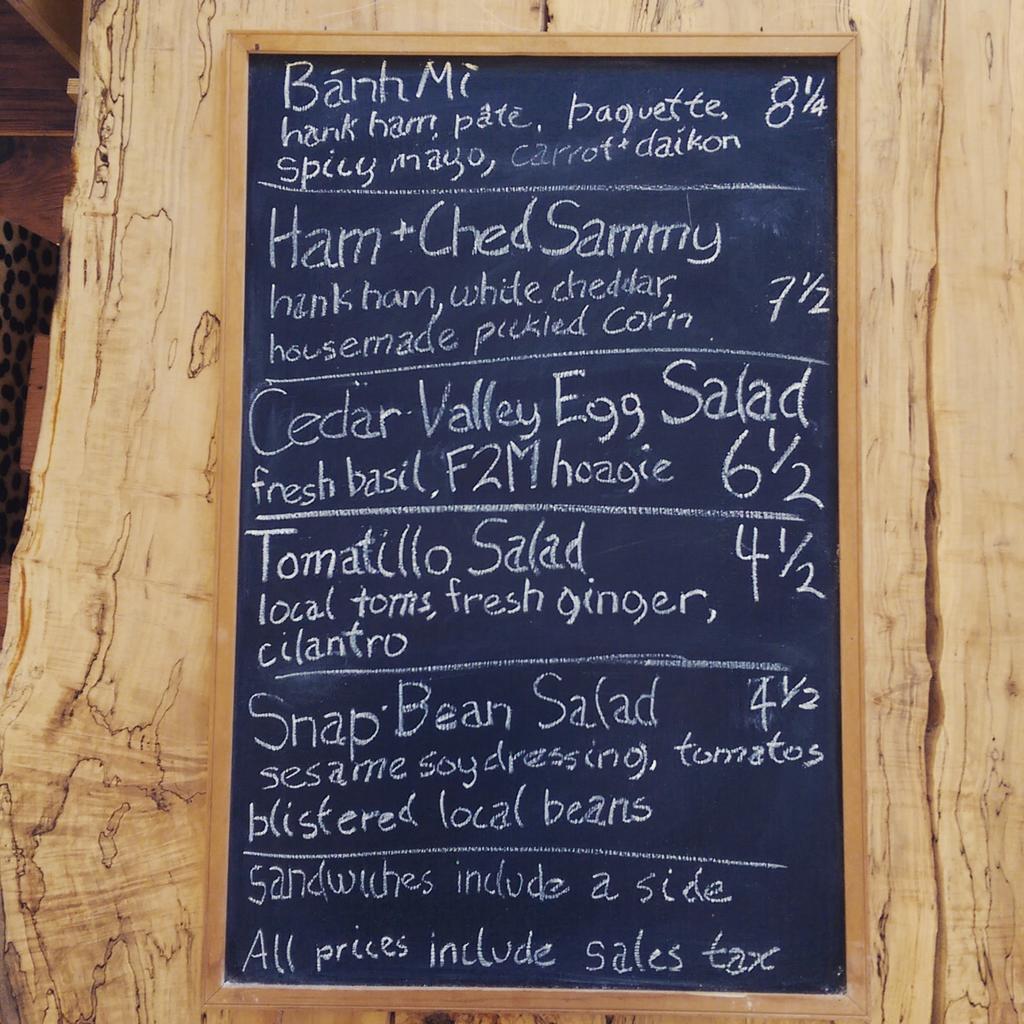 Bánh Mi 8 1/4
hank ham, pâté, baguette,
spicy mayo, carrot + daikon
Ham + Ched Sammy
hank ham, white cheddar, 7 1/2
housemade pickled corn
Cedar Valley Egg Salad
fresh basil, F2M hoagie 6 1/2
Tomatillo Salad 4 1/2
local toms, fresh ginger,
cilantro
Snap Bean Salad 4 1/2
sesame soy dressing, tomatos
blistered local beans
Sandwiches include a side
All prices include sales tax